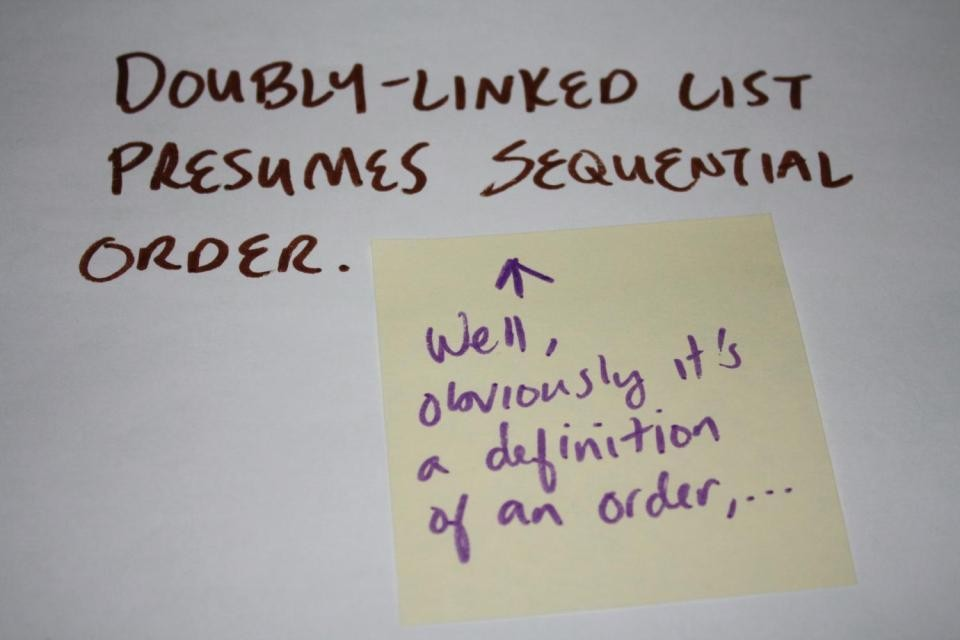 DOUBLY-LINKED LIST
PRESUMES SEQUENTIAL
ORDER.
↑
Well,
obviously it's
a definition
of an order,...